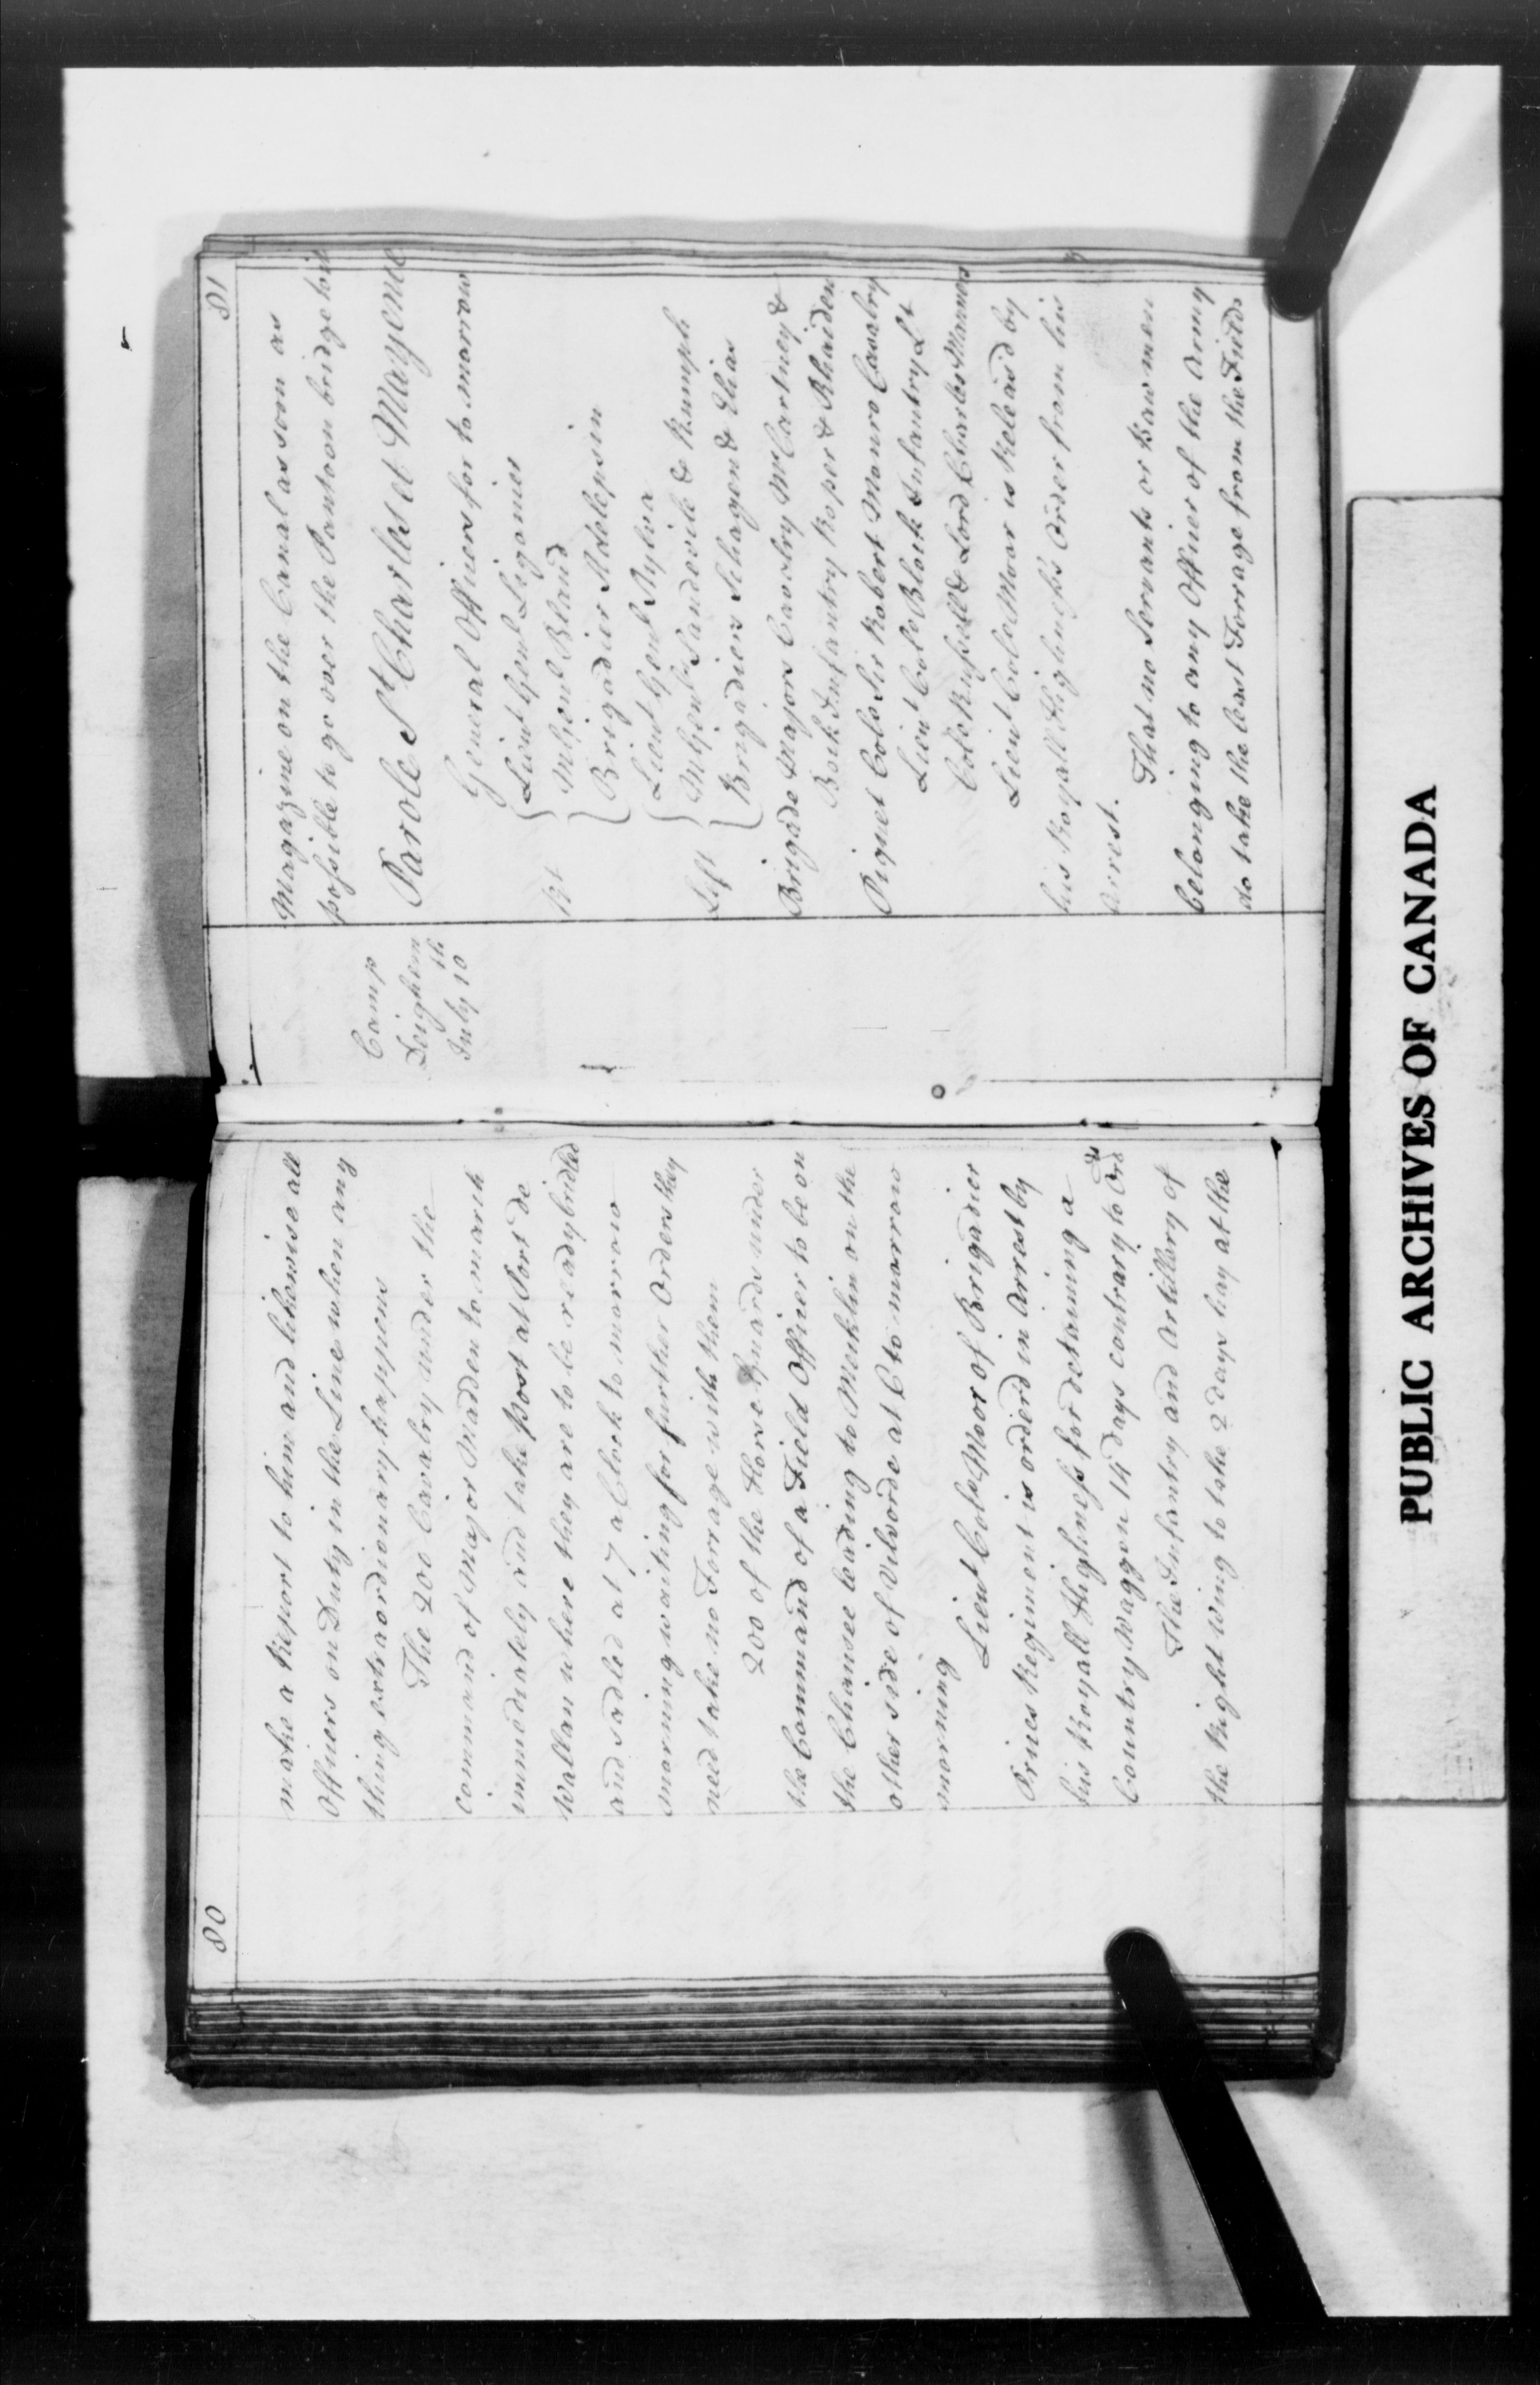 80
make a Report to him and likewise all
Officers on Duty in the Line when any
thing extraordionary happens
The 200 Cavalry under the
command of Major Madden to march
immediately and take post at Port de
Wallan where they are to be ready bridled
and sadled at 7 a Clock to morrow
morning waiting for further Orders they
need take no Forrage with them
200 of the Horse Guards under
the Command of a Field Officer to be on
the Chausee leading to Mecklin on the
other side of Vilvorde at 6 to morrow
morning
Lieut Colo Moor of Brigadier
Prices Regiment is orderd in Arrest by
his Royall Highness for detaining a
Country Waggon 14 days contrary to Ordrs
The Infantry and Artillery of
the Right Wing to take 2 days hay at the
81
Magazine on the Canal as soon as
possible to go over the Pantoon bridge to it
Camp
Deighem
July 10th
Parole St Charles et Mayence
General Officers for to morrow
Rt
Lieut Genl Ligonier
M Genl Bland
Brigadier
Left
Lieut Genl
M Genls Sandovile & Rumph
Brigadiers Schagen & Elias
Brigade Majors Cavalry McCartney &
Bock Infantry Roper & Rhaiden
Piquet Colo Sir Robert Monro Cavalry
Lieut Colo Block Infantry Lt
Colo Russell & Lord Charles Manners
Lieut Colo Moor is Releas'd by
his Royall Highness's Order from his
Arrest.
That no Servants or Bawmen
belonging to any Officer of the Army
do take the least Forrage from the Fields
PUBLIC ARCHIVES OF CANADA